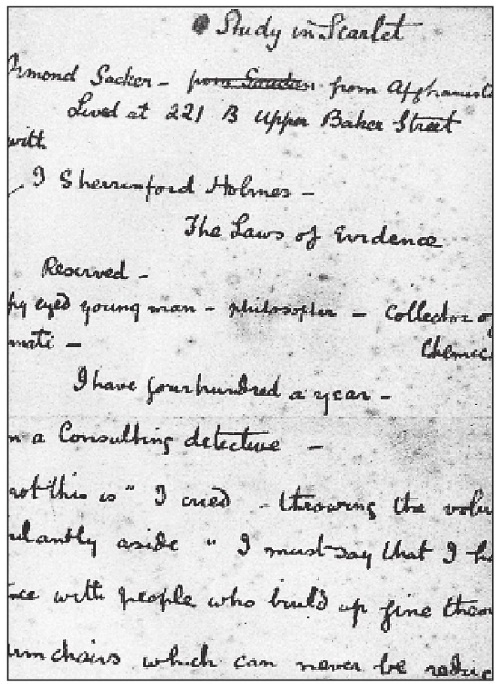 Study in Scarlet
rmond Sacker – from Soudan from Afghanista
Lived at 221 B Upper Baker Street
with
I Sherrinford Holmes –
The Laws of Evidence
Reserved –
py eyed young man – philosopher – Collector of
Chemic
I have four hundred a year –
m a Consulting detective –
rot this is" I cried – throwing the volu
ulantly aside " I must say that I ha
nce with people who build up fine theor
rmchairs which can never be reduc